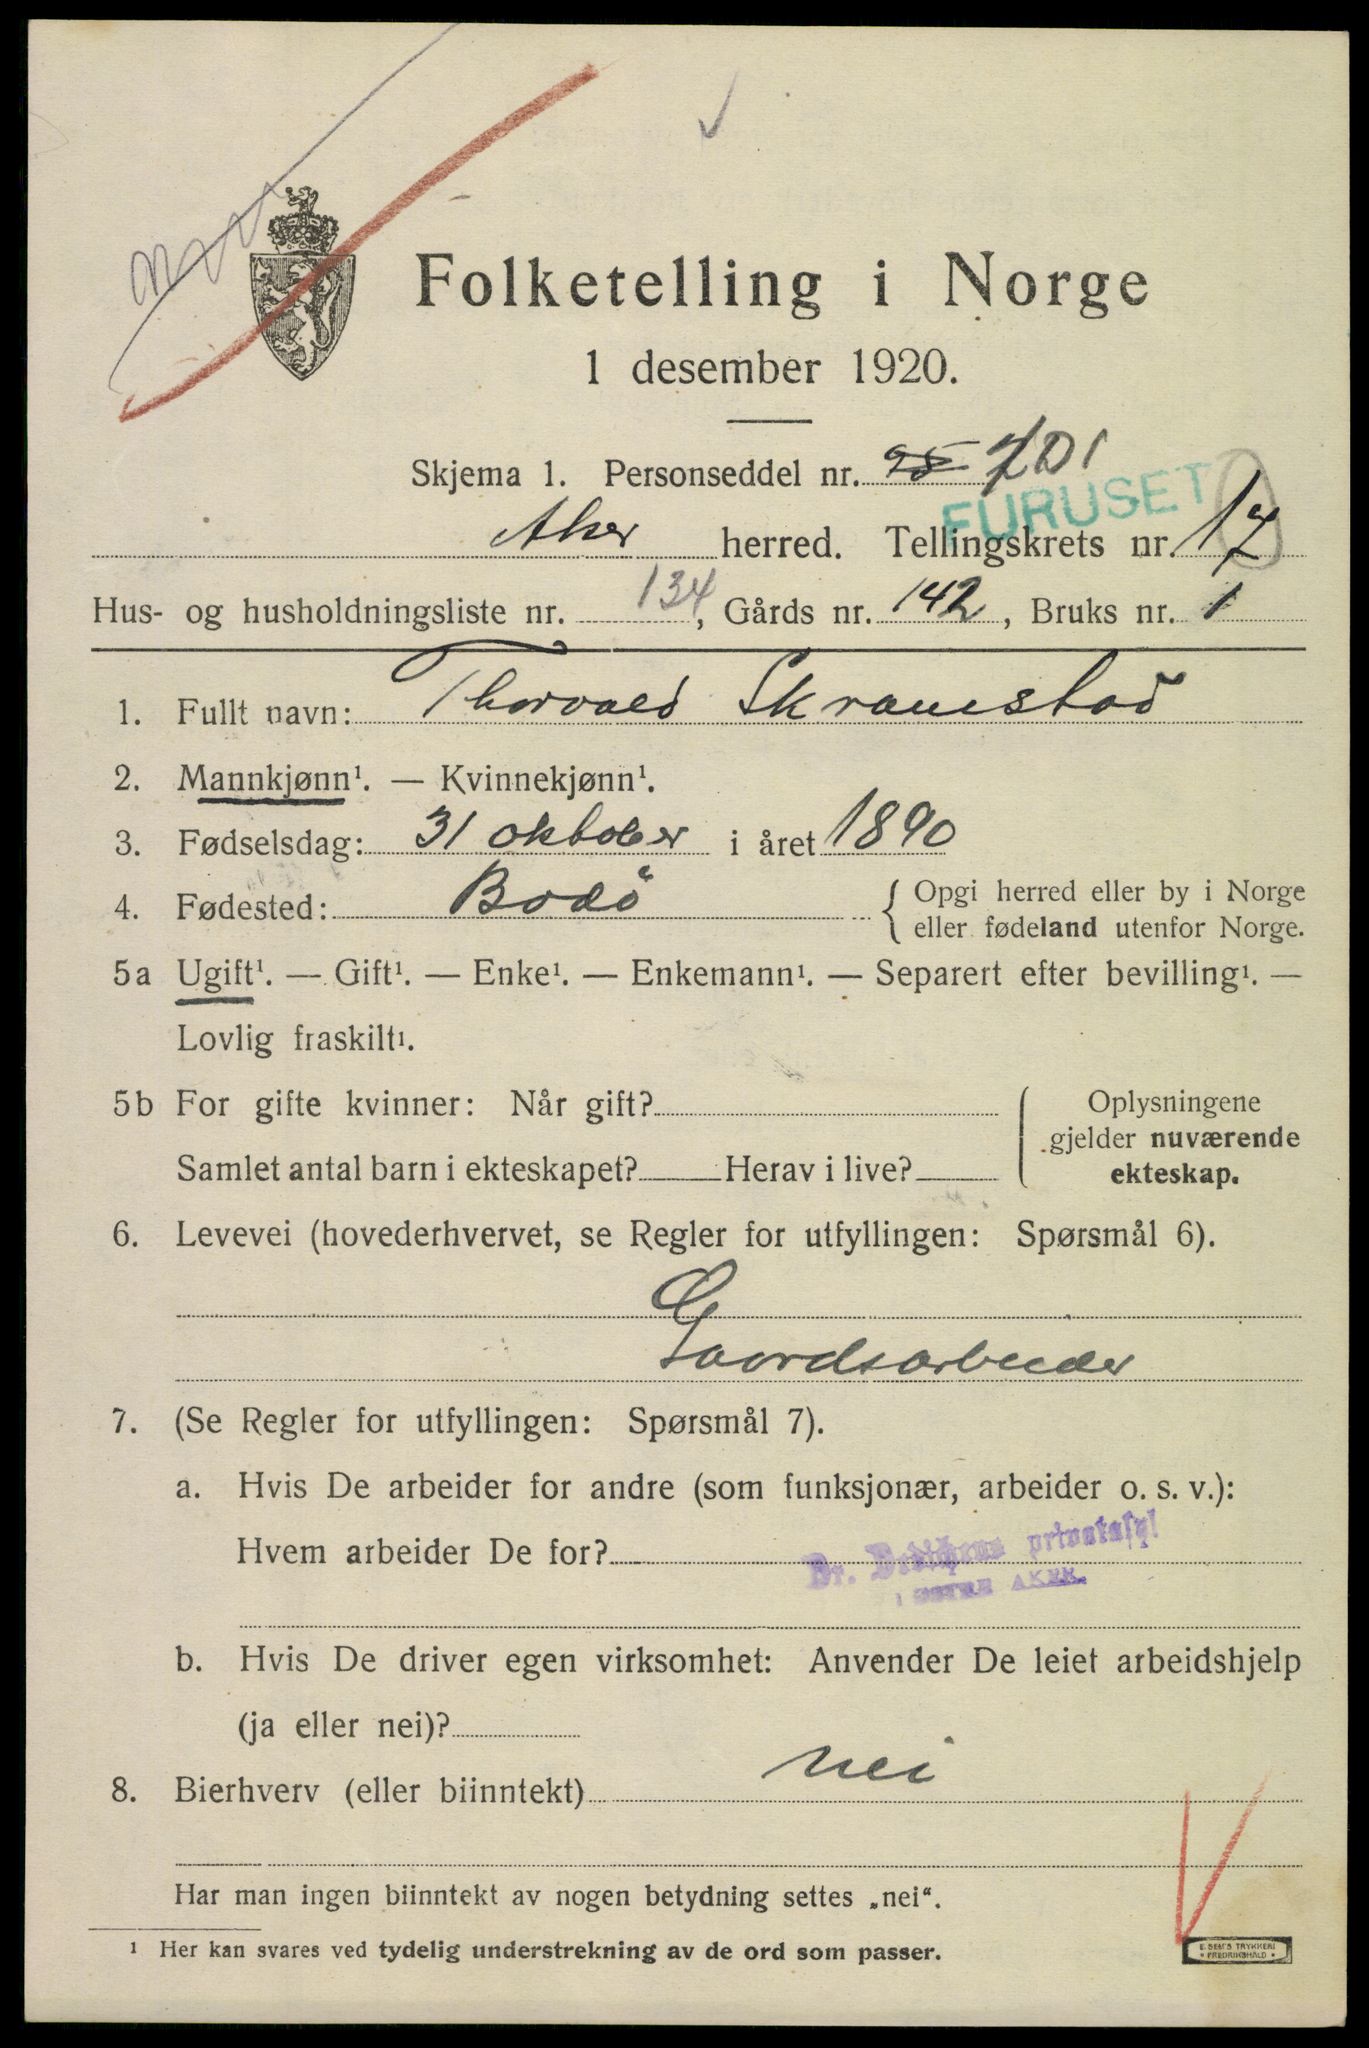 Folketelling i Norge
1 desember 1920.
Skjema 1. Personseddel nr. 25 201
FURUSET
Aker herred. Tellingskrets nr. 17
Hus- og husholdningsliste nr. 134, Gårds nr. 142, Bruks nr. 1
1. Fullt navn: Thorvald Skramstad
2. Mannkjønn¹. — Kvinnekjønn¹.
3. Fødselsdag: 31 oktober i året 1890
4. Fødested: Bodö { Opgi herred eller by i Norge
eller fødeland utenfor Norge.
5a Ugift¹. — Gift¹. — Enke¹. — Enkemann¹. — Separert efter bevilling¹. —
Lovlig fraskilt¹.
5b For gifte kvinner: Når gift?
Samlet antal barn i ekteskapet? Herav i live?
Oplysningene
gjelder nuværende
ekteskap.
6. Levevei (hovederhvervet, se Regler for utfyllingen: Spørsmål 6).
Gaardsarbeider
7. (Se Regler for utfyllingen: Spørsmål 7).
a. Hvis De arbeider for andre (som funksjonær, arbeider o. s. v.):
Hvem arbeider De for? Dr. Dedichens privatasyl
ØSTRE AKER.
b. Hvis De driver egen virksomhet: Anvender De leiet arbeidshjelp
(ja eller nei)?
8. Bierhverv (eller biinntekt) nei
Har man ingen biinntekt av nogen betydning settes „nei“.
¹ Her kan svares ved tydelig understrekning av de ord som passer.
E. SEM'S TRYKKERI
* FREDRIKSHALD *